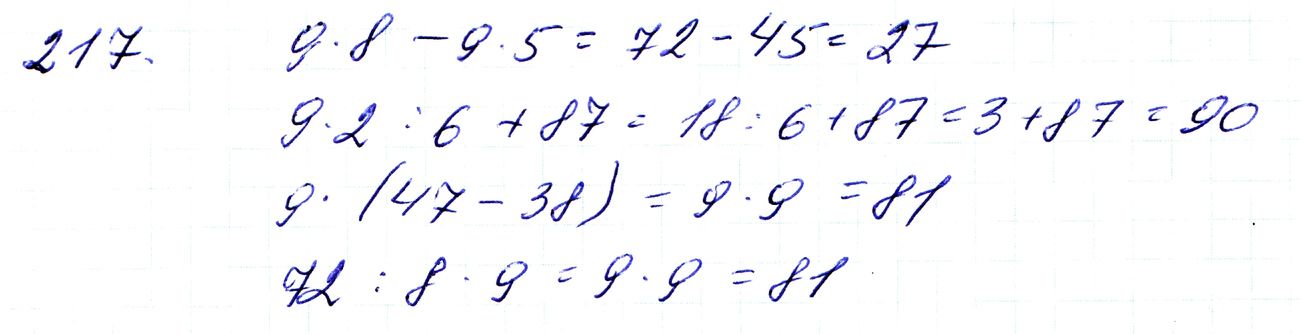 217. 9·8 - 9·5 = 72 - 45 = 27
9·2 : 6 + 87 = 18 : 6 + 87 = 3 + 87 = 90
9·(47 - 38) = 9·9 = 81
72 : 8 · 9 = 9·9 = 81